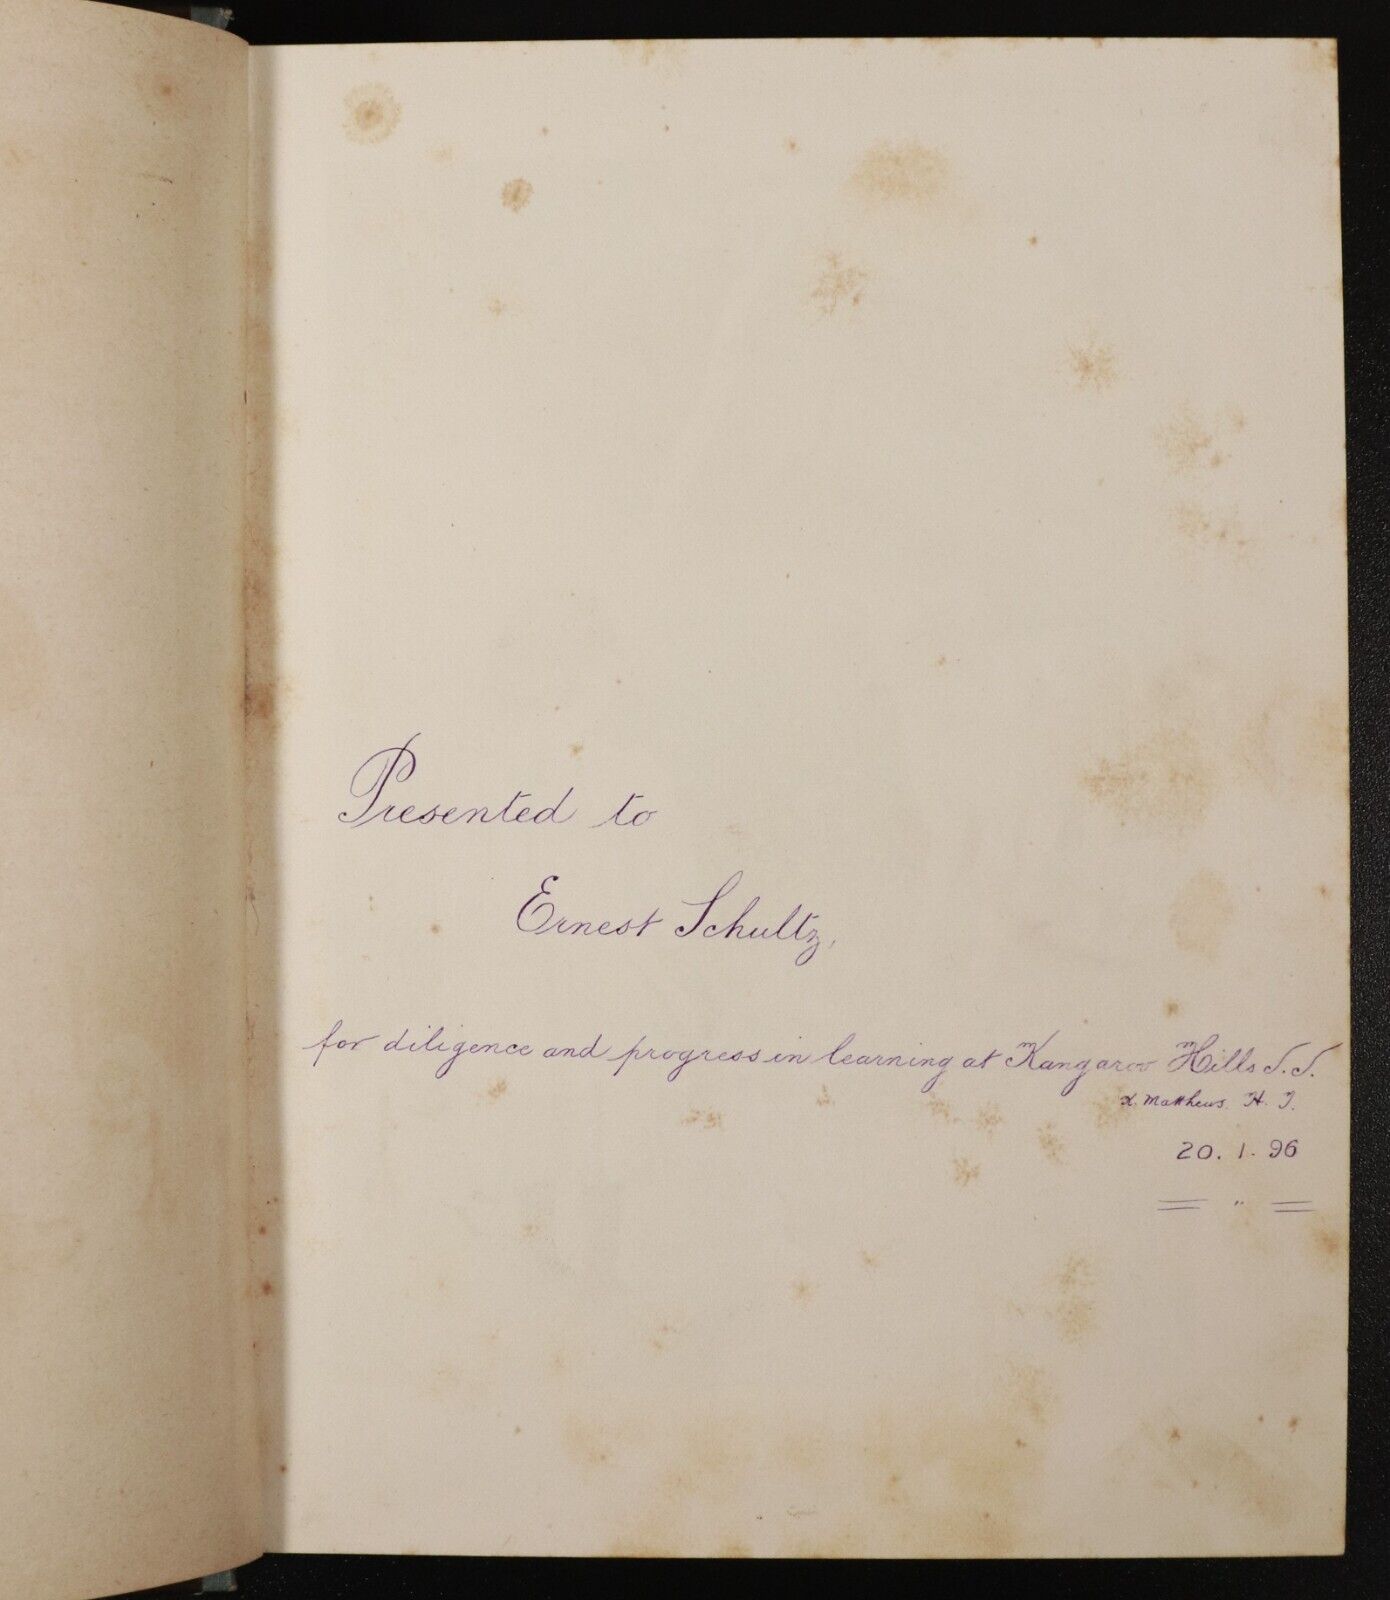 Presented to
Ernest Schultz,
for diligence and progress in learning at Kangaroo Hills S.S.
Matthews. H. T.
20. 1. 96